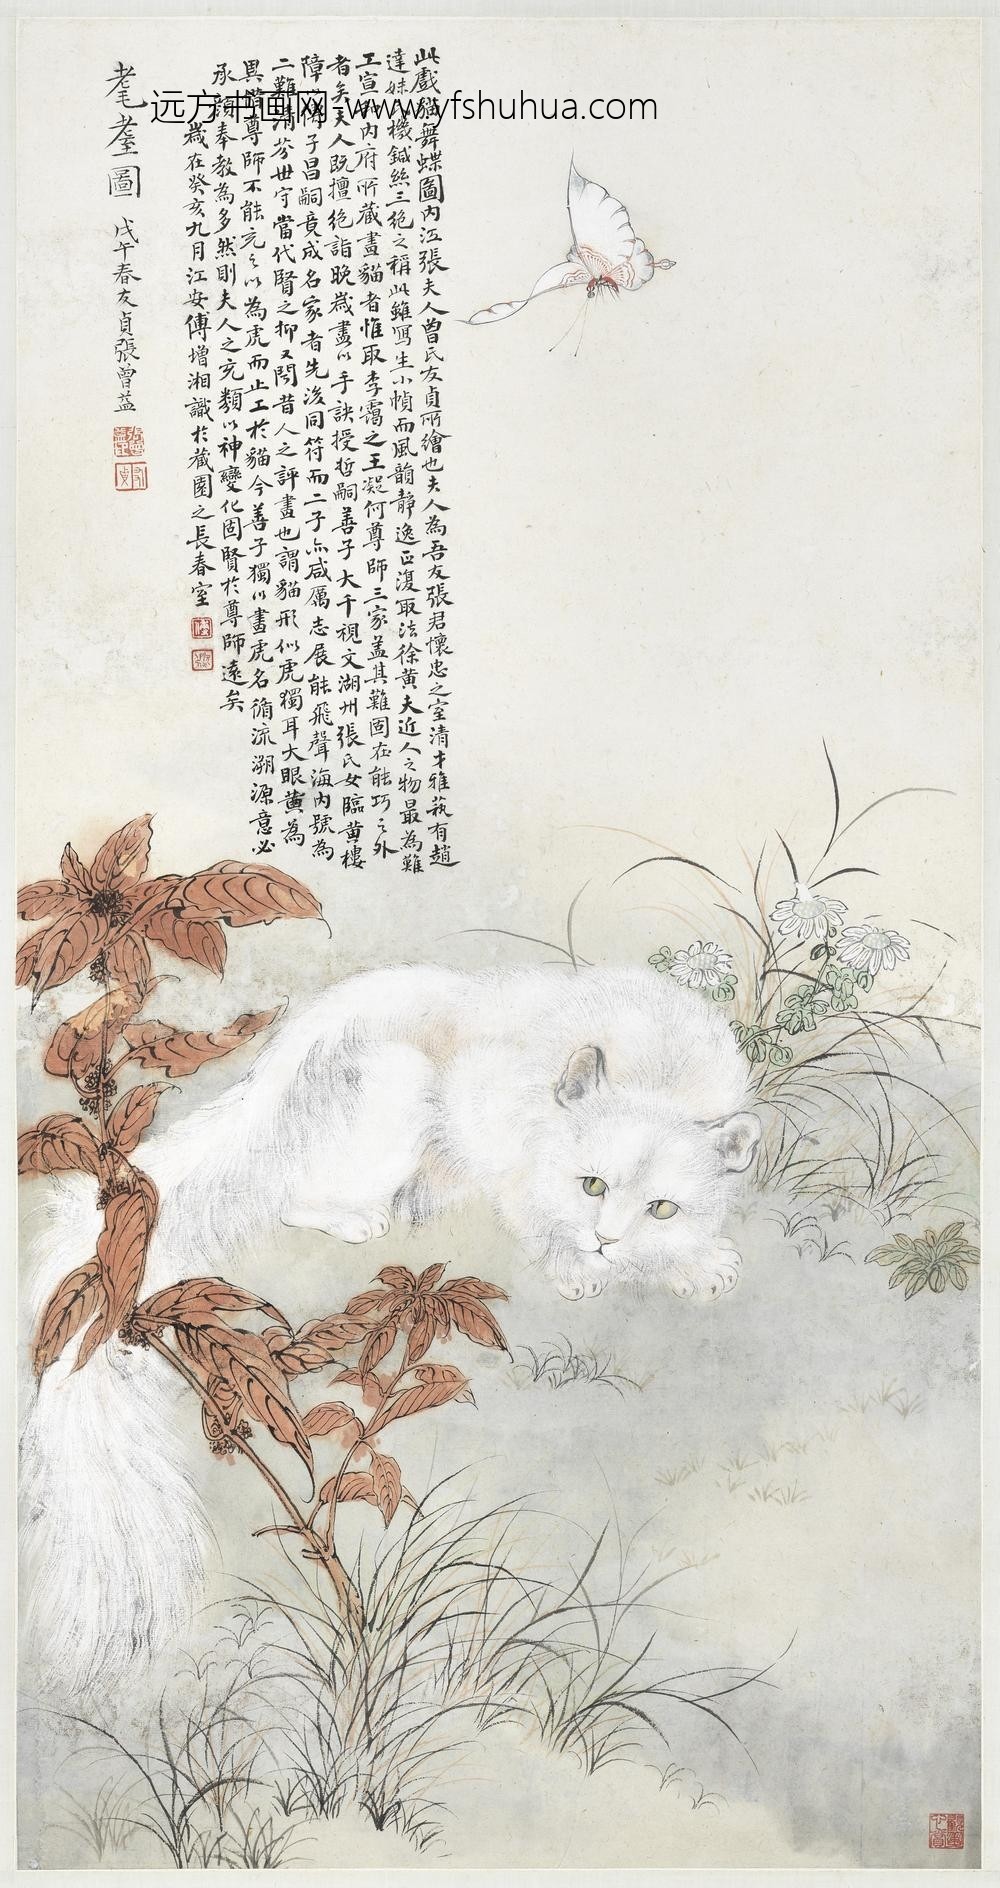 远方书画网-www.yfshuhua.com
此戲貓舞蝶圖內江張夫人曾氏友貞所繪也夫人為吾友張君懷忠之室清才雅蓺有趙
達妹機鍼絲三絕之稱此雖寫生小幀而風韻靜逸正復取法徐黃夫近人之物最為難
工宣和內府所藏畫貓者惟取李靄之王凝何尊師三家蓋其難固在能巧之外
者矣夫人既擅絕詣晚歲畫以手訣授哲嗣善子大千視文湖州張氏女臨黃樓
障子昌嗣竟成名家者先後同符而二子亦咸厲志展能飛聲海內號為
二難清芬世守當代賢之抑又聞昔人之評畫也謂貓形似虎獨耳大眼黃為
異尊師不能充之以為虎而止工於貓今善子獨以畫虎名循流溯源意必
承顏奉教為多然則夫人之充類以神變化固賢於尊師遠矣
歲在癸亥九月江安傅增湘識於藏園之長春室
耄耋圖
戊午春友貞張曾益